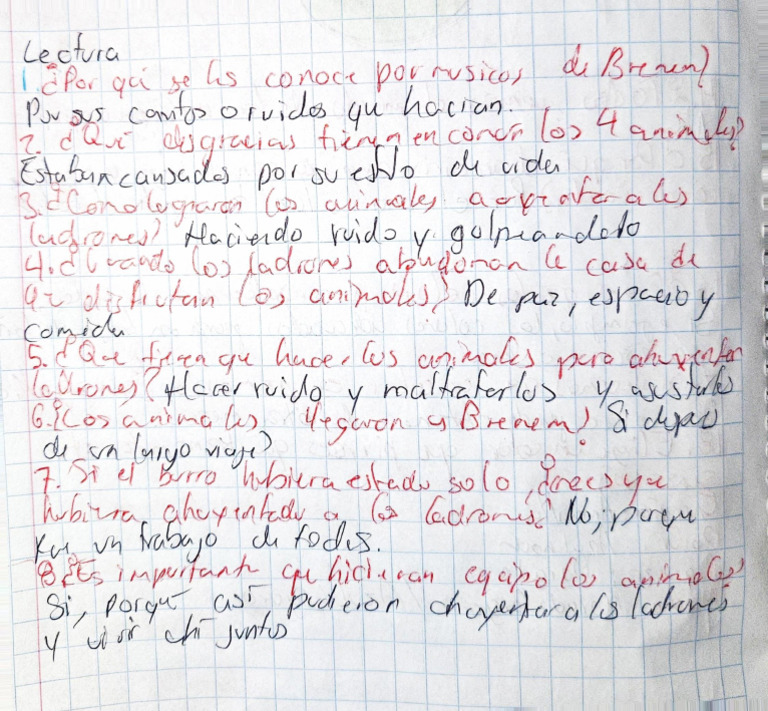 Lectura
1. ¿Por qué se les conoce por musicos de Bremen?
Por sus cantos o ruidos que hacian.
2. ¿Qué desgracias tienen en común los 4 animales?
Estaban cansados por su estilo de vida
3. ¿Como lograron los animales ahuyentar a los
ladrones? Haciendo ruido y golpeandolo
4. ¿Cuando los ladrones abandonan la casa de
que disfrutan los animales? De paz, espacio y
comida
5. ¿Que tienen que hacer los animales para ahuyentar
ladrones? Hacer ruido y maltratarlos y asustarlos
6. ¿Los animales llegaron a Brenem? Si depues
de un largo viaje?
7. Si el burro hubiera estado solo, ¿crees que
hubiera ahuyentado a los ladrones? No, porque
fue un trabajo de todos.
8. ¿Es importante que hicieran equipo los animales?
Si, porqué así pudieron ahuyentar a los ladrones
y vivir ahí juntos